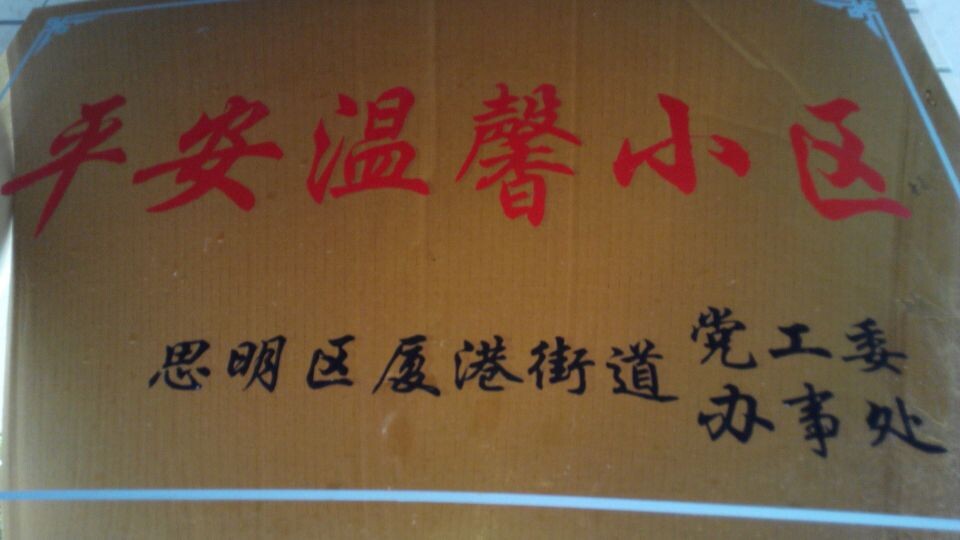 平安温馨小区
思明区厦港街道党工委
办事处